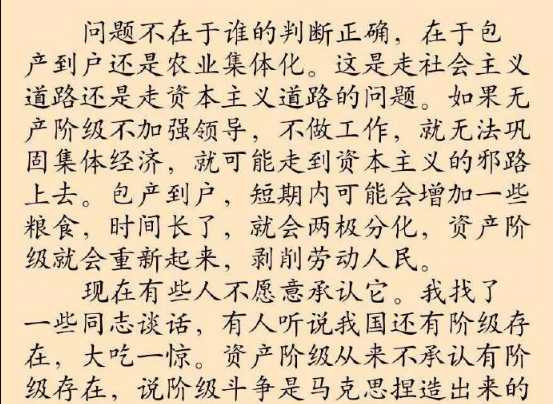 问题不在于谁的判断正确，在于包
产到户还是农业集体化。这是走社会主义
道路还是走资本主义道路的问题。如果无
产阶级不加强领导，不做工作，就无法巩
固集体经济，就可能走到资本主义的邪路
上去。包产到户，短期内可能会增加一些
粮食，时间长了，就会两极分化，资产阶
级就会重新起来，剥削劳动人民。
现在有些人不愿意承认它。我找了
一些同志谈话，有人听说我国还有阶级存
在，大吃一惊。资产阶级从来不承认有阶
级存在，说阶级斗争是马克思捏造出来的